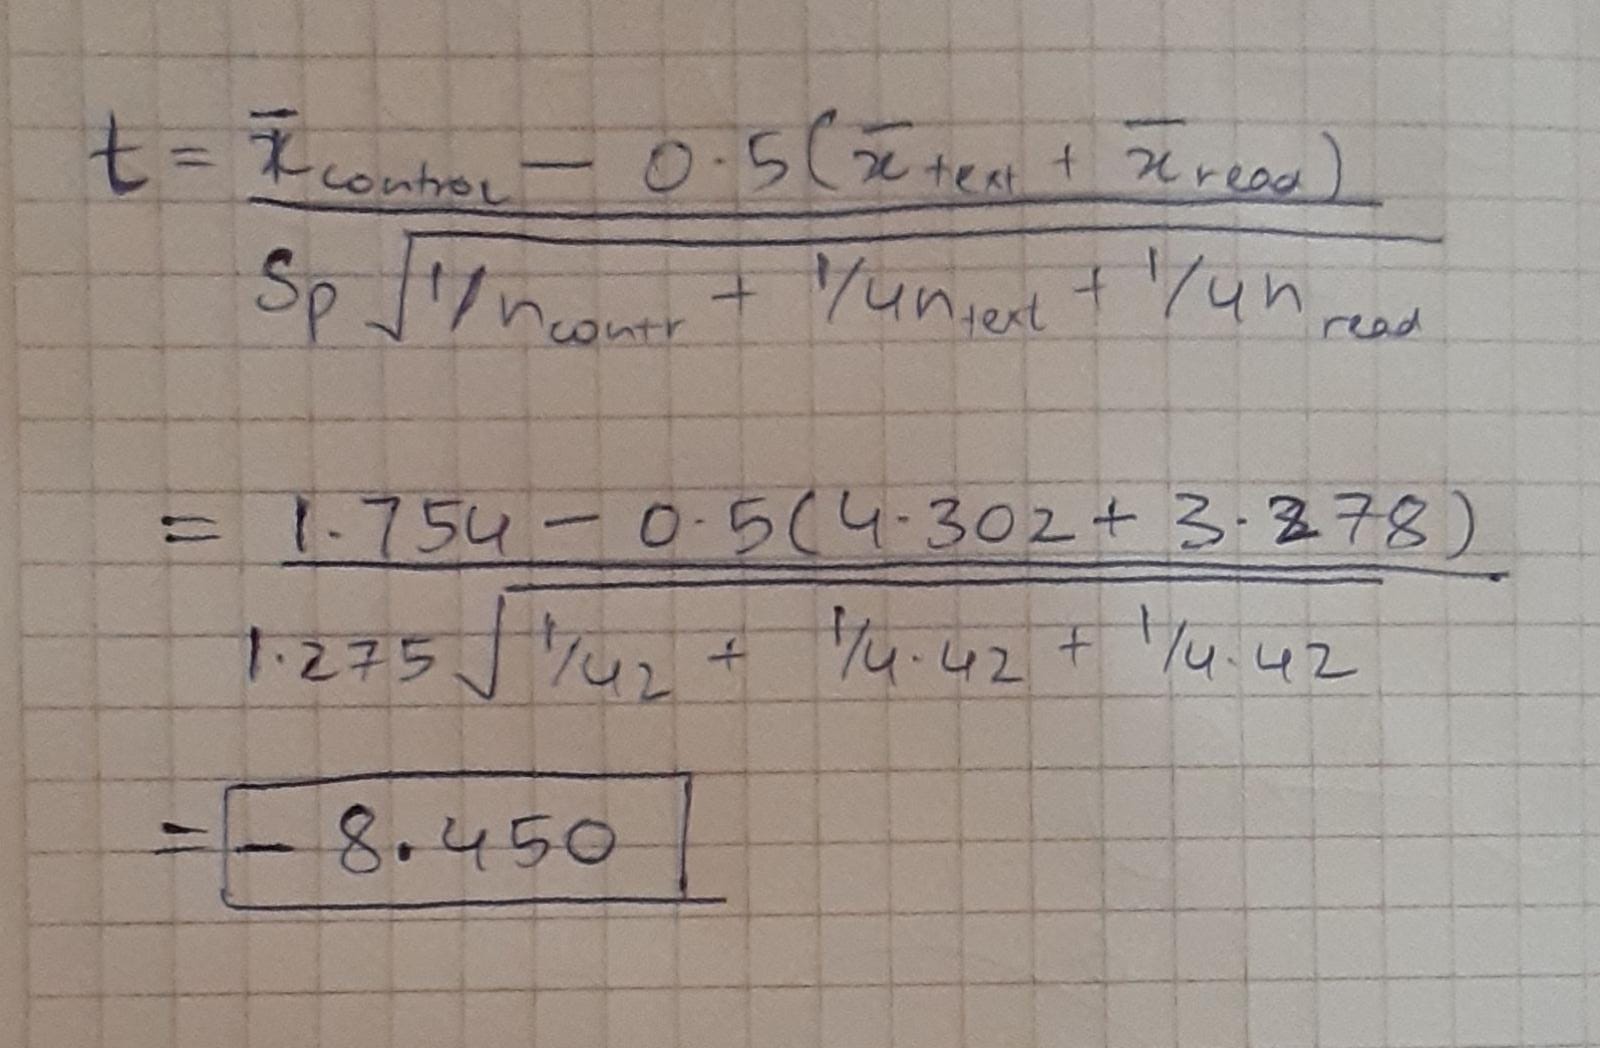 t = x̄ control − 0.5(x̄ text + x̄ read)
Sp √1/n contr + 1/4n text + 1/4n read
= 1.754 − 0.5(4.302 + 3.278)
1.275 √1/42 + 1/4.42 + 1/4.42
= − 8.450